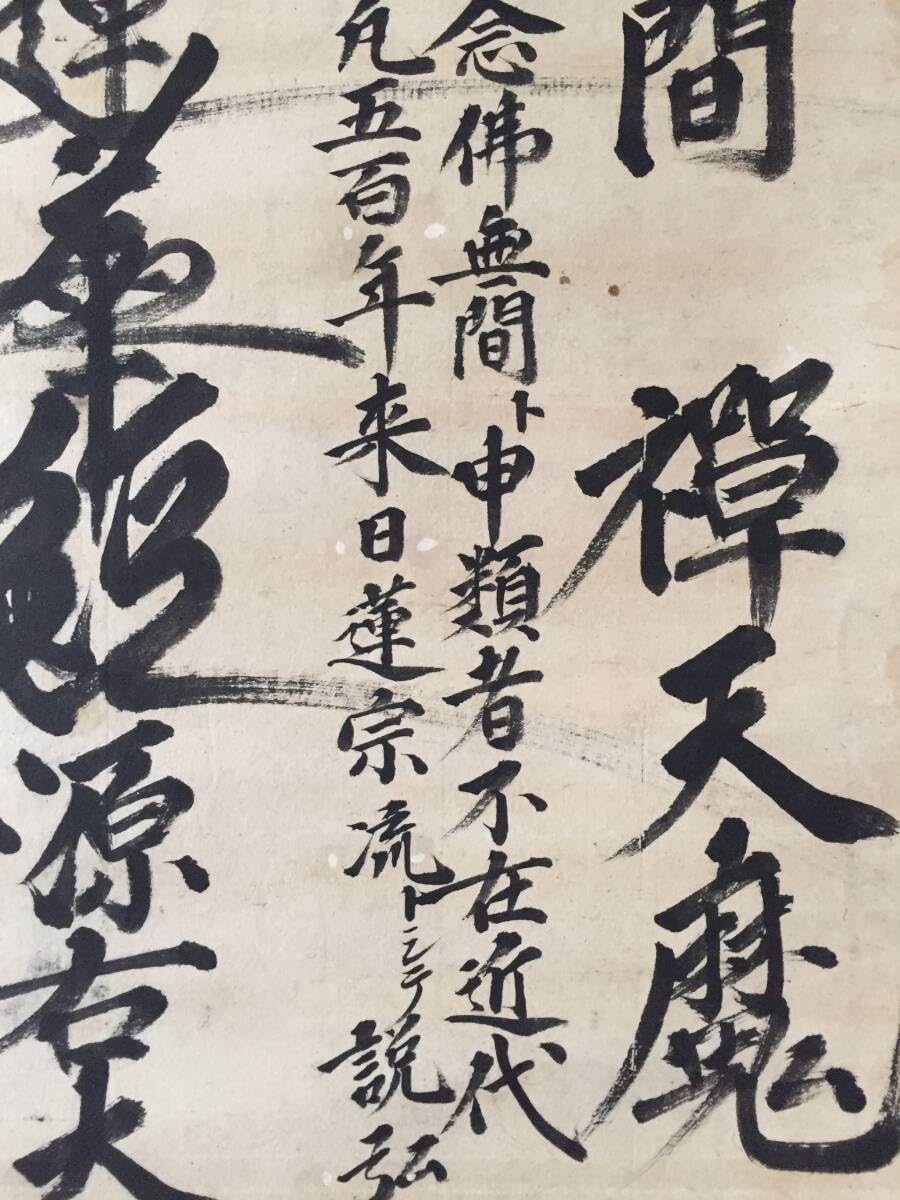 間 禪天魔
念佛無間ト申類者不在近代
凡五百年来日蓮宗流トシテ説弘
蓮華経源右大